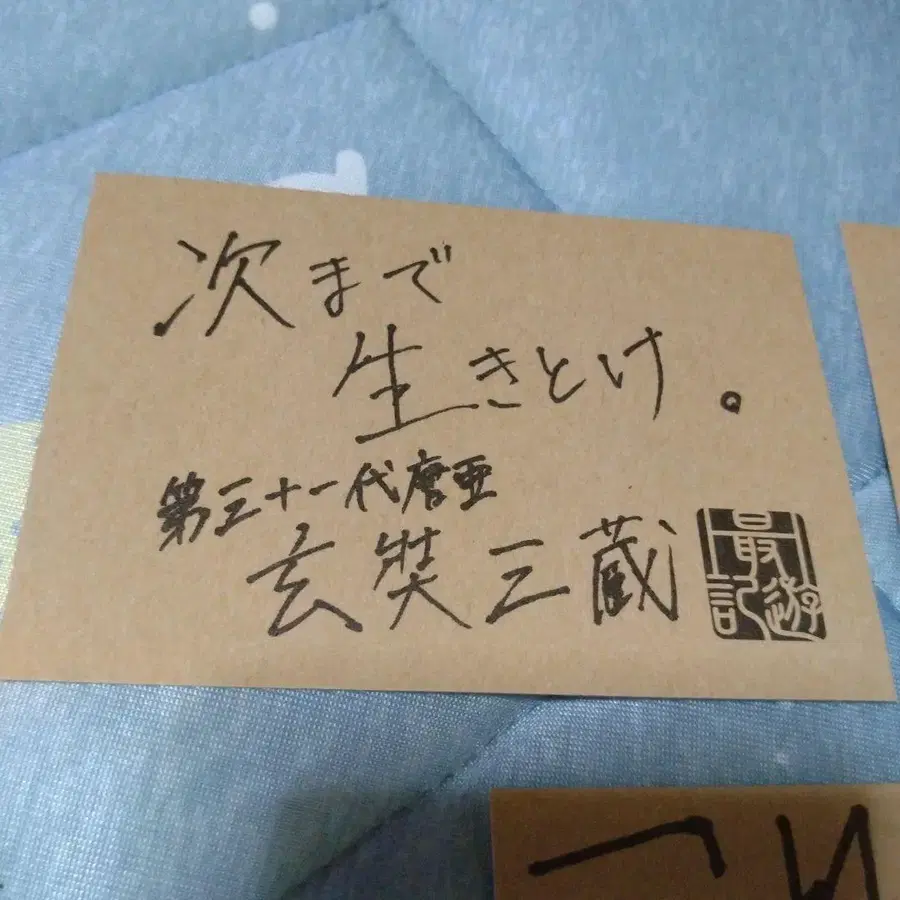 次まで
生きとけ。
第三十一代唐亜
玄奘三蔵
最遊記